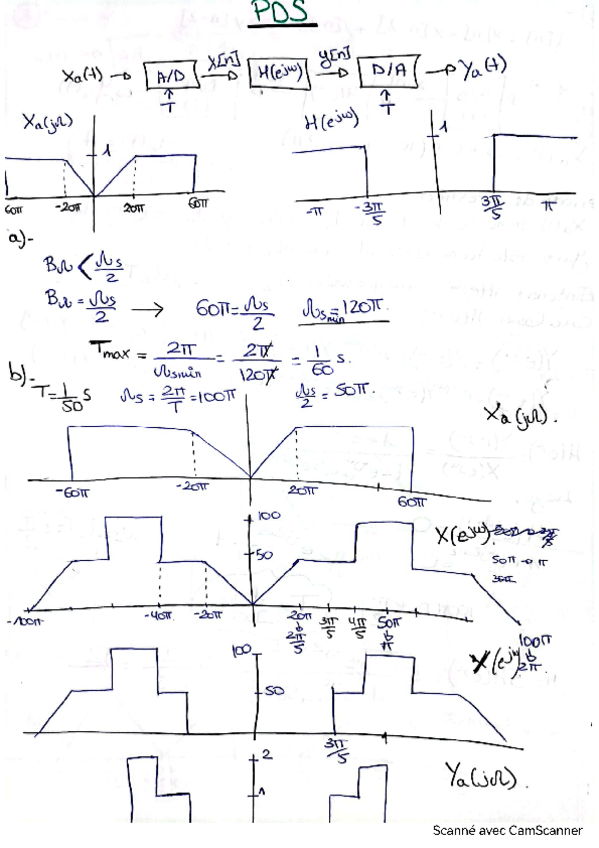 PDS
Xa(t) → A/D X[n] → H(ejω) y[n] → D/A → Ya(t)
T T
Xa(jΩ) H(ejω)
1 1
60π -20π 20π 60π -π -3π/5 3π/5 π
a)-
BΩ < Ωs/2
BΩ = Ωs/2 → 60π = Ωs/2 Ωsmin = 120π.
Tmax = 2π/Ωsmin = 2π/120π = 1/60 s.
b)-
T = 1/50 s Ωs = 2π/T = 100π Ωs/2 = 50π.
Xa(jΩ).
-60π -20π 20π 60π
100
X(ejω)
50 50π → π
-100π -40π -20π 20π 3π/5 4π/5 50π
2π/5 π 100π
X(ejω) 2π
100
50
3π/5
2 Ya(jΩ).
1
Scanné avec CamScanner